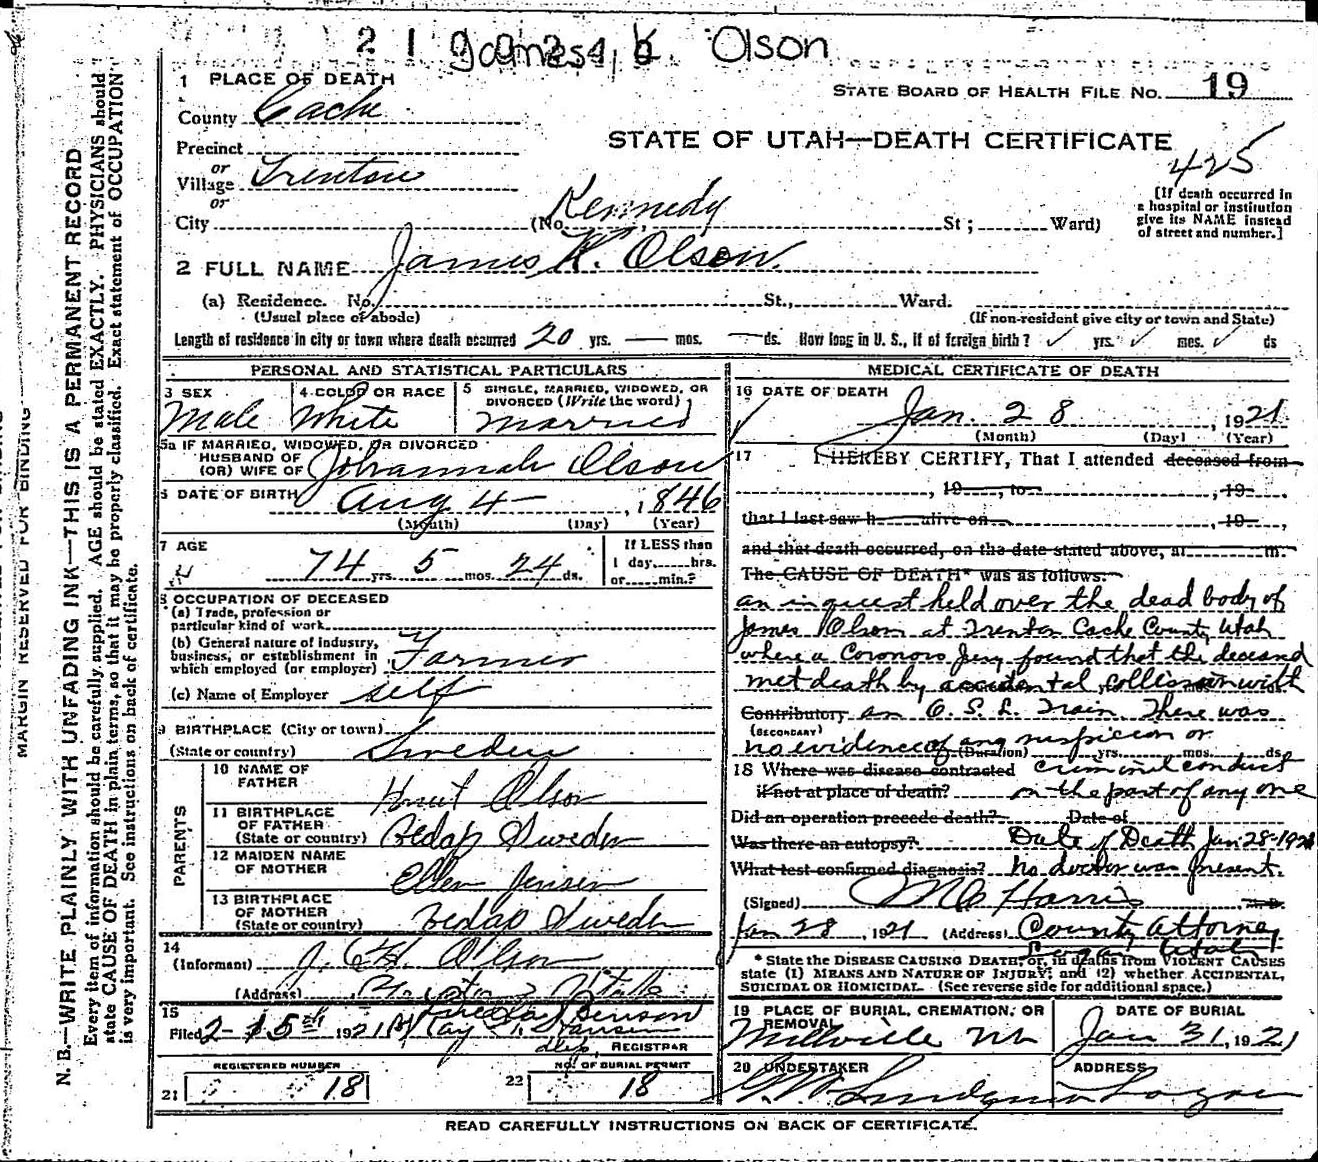 James K. Olson
1 PLACE OF DEATH
STATE BOARD OF HEALTH FILE NO. 19
County Cache
STATE OF UTAH—DEATH CERTIFICATE
425
Precinct
or
Village Trenton
or
[If death occurred in
a hospital or institution
give its NAME instead
of street and number.]
City (No. St; Ward)
Kennedy
2 FULL NAME James K. Olson.
(a) Residence. No. St., Ward.
(Usual place of abode) (If non-resident give city or town and State)
Length of residence in city or town where death occurred 20 yrs. — mos. — ds. How long in U. S., if of foreign birth? yrs. mos. ds
PERSONAL AND STATISTICAL PARTICULARS
3 SEX
Male
4 COLOR OR RACE
White
5 SINGLE, MARRIED, WIDOWED, OR
DIVORCED (Write the word)
Married
5a IF MARRIED, WIDOWED, OR DIVORCED
HUSBAND OF
(OR) WIFE OF Johannah Olson
6 DATE OF BIRTH Aug 4 — , 1846
(Month) (Day) (Year)
7 AGE
74 yrs. 5 mos. 24 ds.
If LESS than
1 day......hrs.
or......min.?
8 OCCUPATION OF DECEASED
(a) Trade, profession or
particular kind of work
(b) General nature of industry,
business, or establishment in
which employed (or employer) Farmer
(c) Name of Employer self
9 BIRTHPLACE (City or town)
(State or country) Sweden
PARENTS
10 NAME OF
FATHER Knut Olson
11 BIRTHPLACE
OF FATHER
(State or country) Sweden
12 MAIDEN NAME
OF MOTHER Ellen Jensen
13 BIRTHPLACE
OF MOTHER
(State or country) Sweden
14
(Informant) Olson
(Address) Utah
15
Filed 2-15th 1921
REGISTRAR
REGISTERED NUMBER
21 18
NO. OF BURIAL PERMIT
22 18
MEDICAL CERTIFICATE OF DEATH
16 DATE OF DEATH
Jan. 28 , 1921.
(Month) (Day) (Year)
17 I HEREBY CERTIFY, That I attended deceased from
, 19 , to , 19
that I last saw h alive on , 19 ,
and that death occurred, on the date stated above, at m.
The CAUSE OF DEATH* was as follows:
an inquest held over the dead body of
James Olson at Trenton Cache County, Utah
where a Coronors Jury found that the deceased
met death by accidental collission with
Contributory an O. S. L. Train. There was
(SECONDARY)
no evidence of any suspicion or
(Duration) yrs. mos. ds
18 Where was disease contracted criminal conduct
if not at place of death? on the part of any one
Did an operation precede death? Date of
Was there an autopsy? Date of Death Jan-28-1921
What test confirmed diagnosis? No doctor was present.
(Signed) Harris M.D.
Jan 28 , 1921 (Address) County Attorney
Logan Utah
* State the DISEASE CAUSING DEATH, or, in deaths from VIOLENT CAUSES
state (1) MEANS AND NATURE OF INJURY; and (2) whether ACCIDENTAL,
SUICIDAL OR HOMICIDAL. (See reverse side for additional space.)
19 PLACE OF BURIAL, CREMATION, OR
REMOVAL
Millville
DATE OF BURIAL
Jan 31, 1921
20 UNDERTAKER
ADDRESS
Logan
READ CAREFULLY INSTRUCTIONS ON BACK OF CERTIFICATE.
MARGIN RESERVED FOR BINDING
N. B.—WRITE PLAINLY WITH UNFADING INK—THIS IS A PERMANENT RECORD
Every item of information should be carefully supplied. AGE should be stated EXACTLY. PHYSICIANS should
state CAUSE OF DEATH in plain terms, so that it may be properly classified. Exact statement of OCCUPATION
is very important. See instructions on back of certificate.